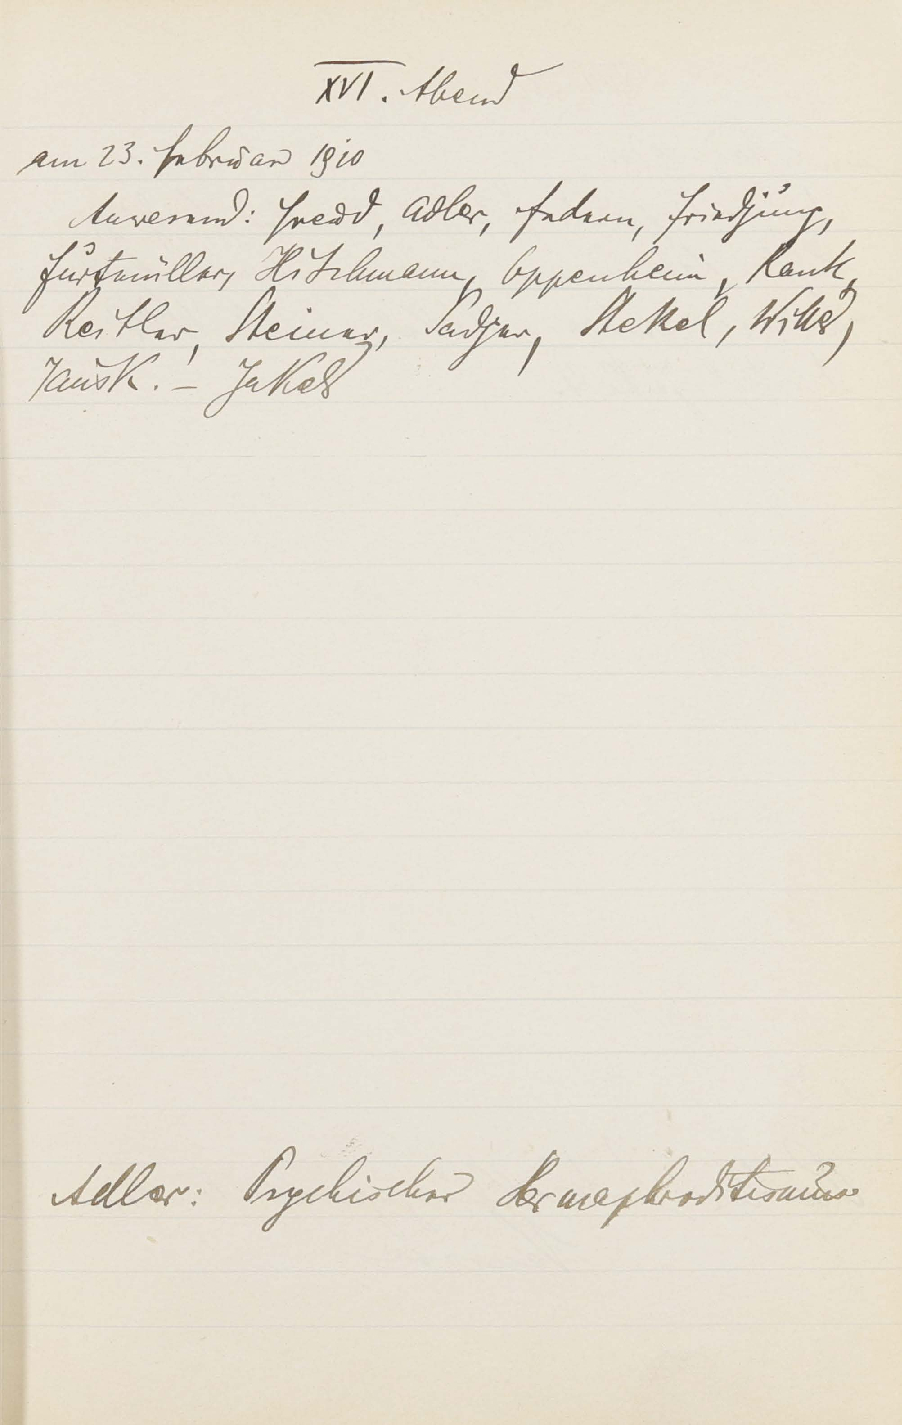 XVI. Abend
am 23. Februar 1910
Anwesend: Freud, Adler, Federn, Friedjung,
Furtmüller, Hitschmann, Oppenheim, Rank,
Reitler, Steiner, Sadger, Stekel, Wittels,
Tausk. – Jekels
Adler: Psychischer Hermaphroditismus